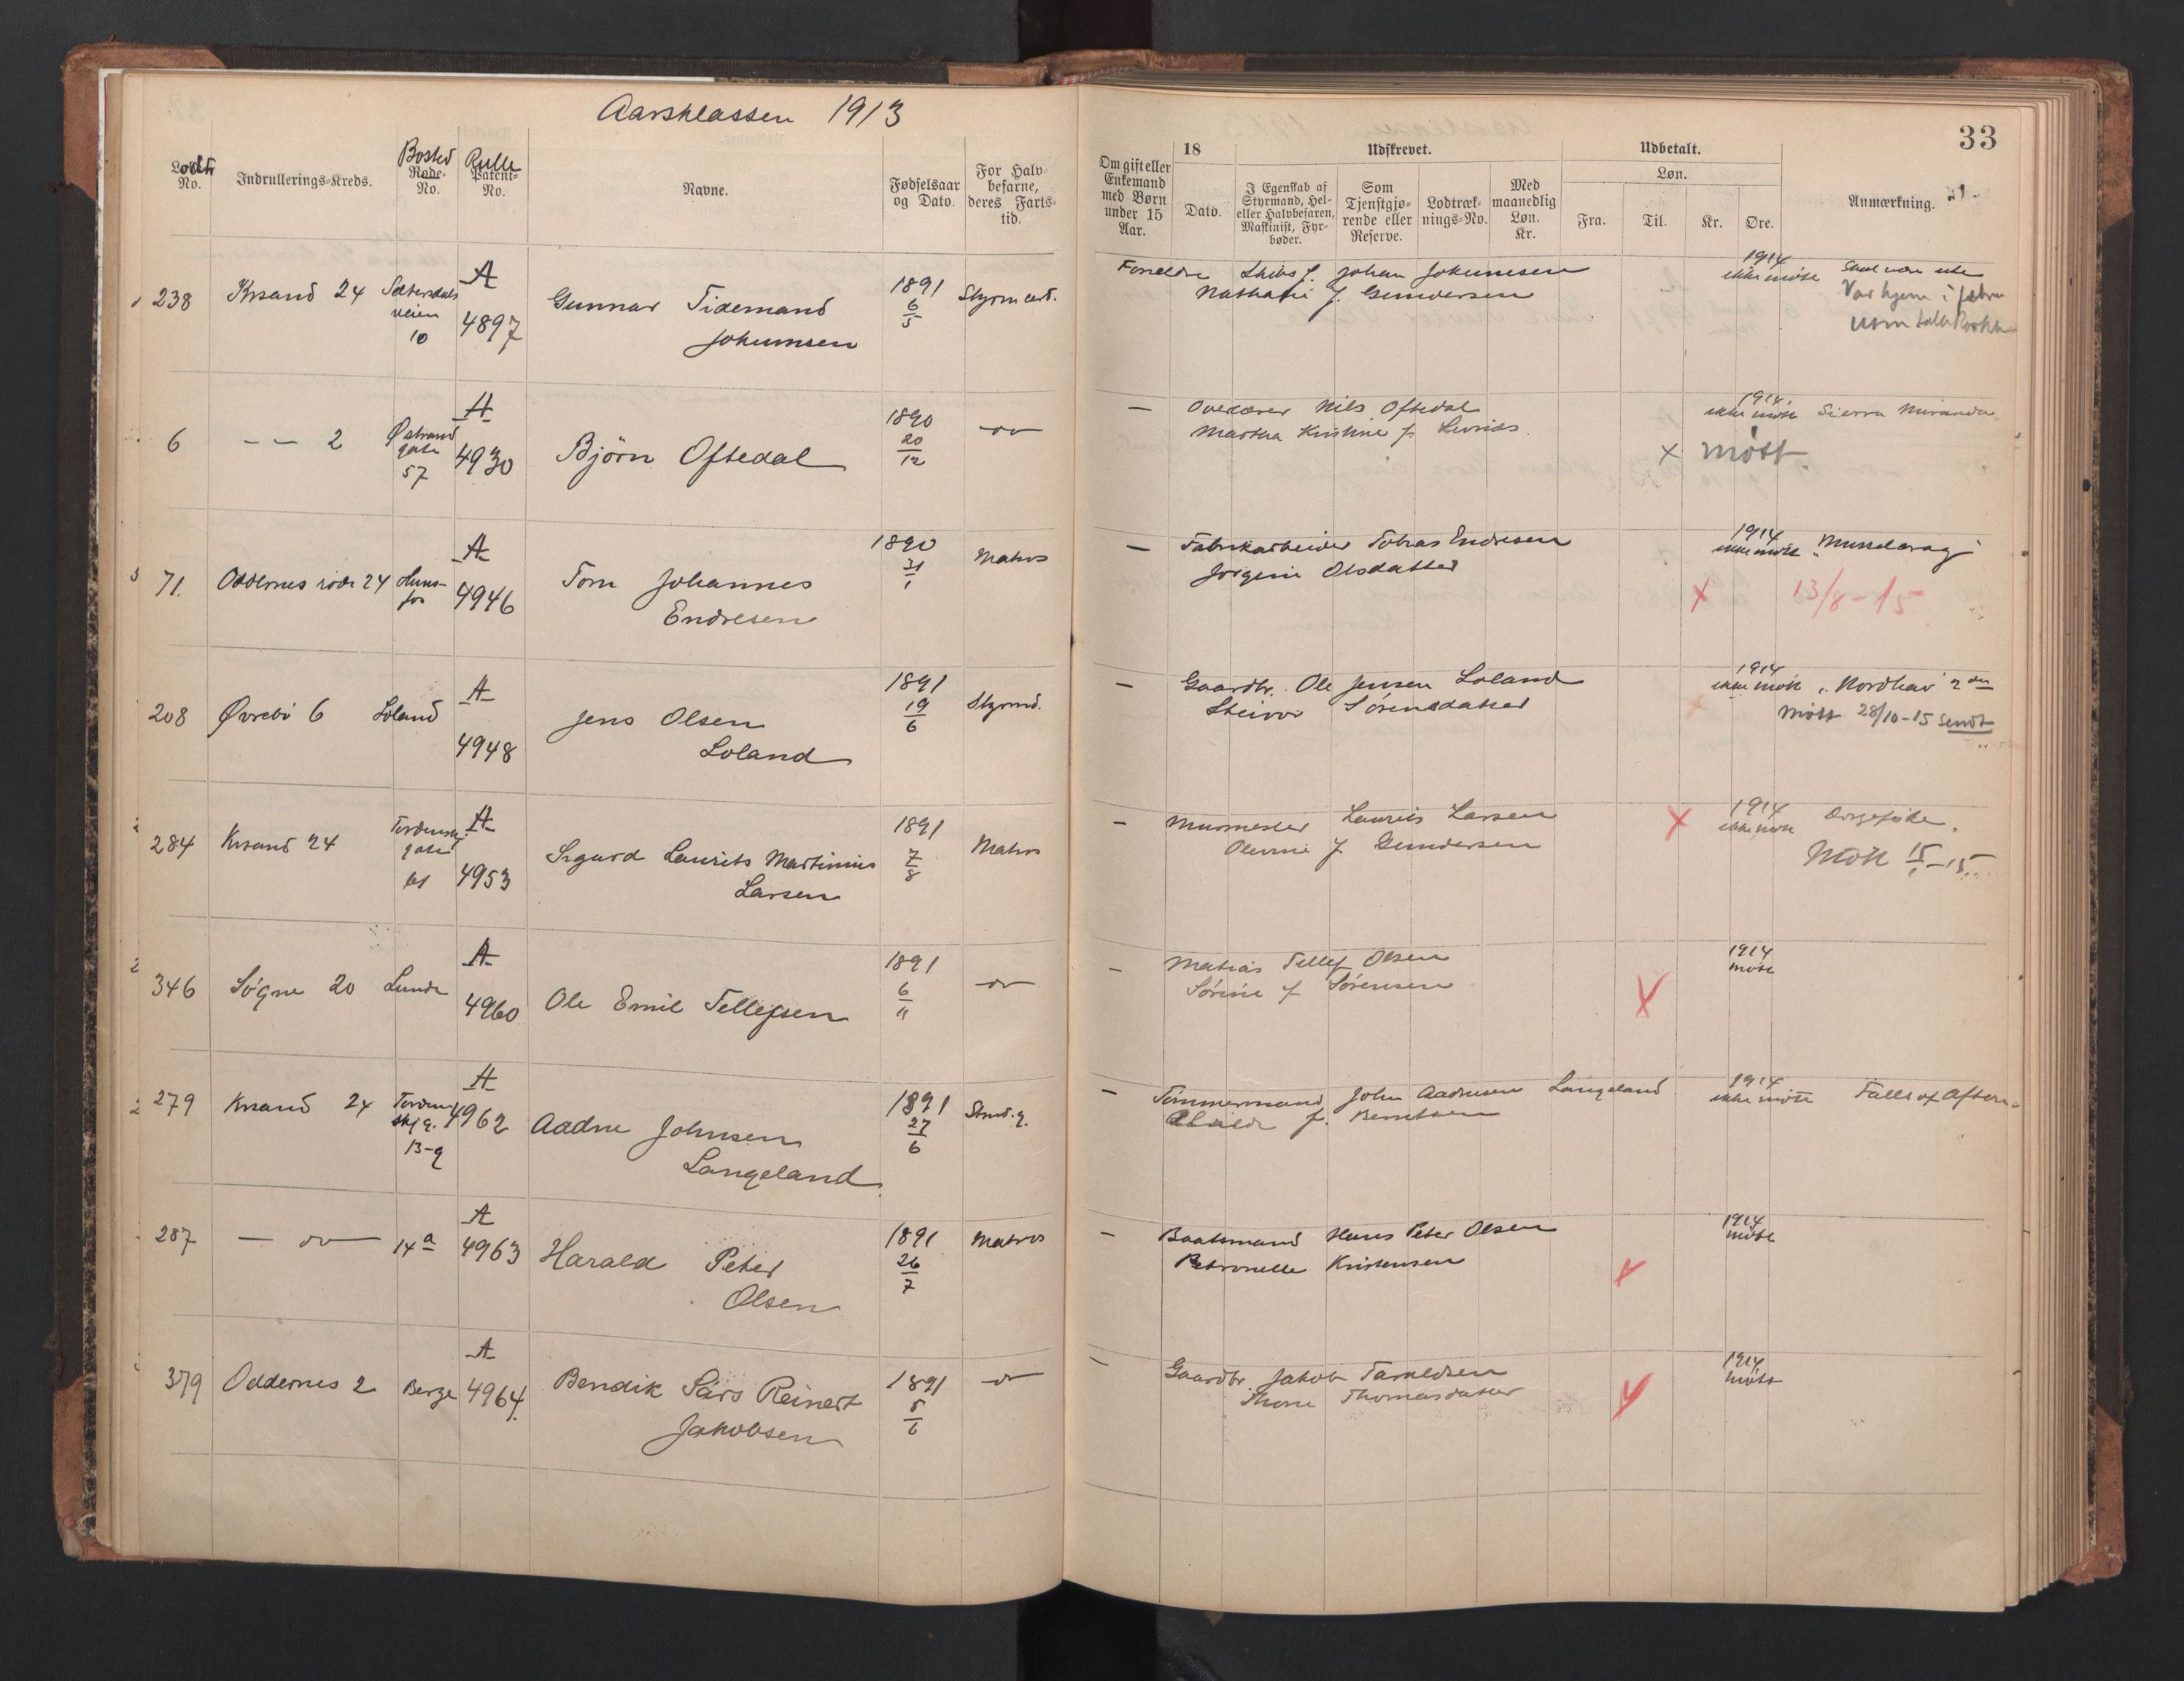 Aarsklassen 1913
33
Lodtr No.
Indrullerings-Kreds.
Bosted
Rode-No.
Rulle
Patent-No.
Navne.
Fødselsaar og Dato.
For Halvbefarne, deres Fartstid.
Om gift eller Enkemand med Børn under 15 Aar.
18
Dato.
Udskrevet.
I Egenskab af Styrmand, Hel- eller Halvbefaren, Maskinist, Fyrbøder.
Som Tjenstgjørende eller Reserve.
Lodtræknings-No.
Med maanedlig Løn. Kr.
Udbetalt.
Løn.
Fra.
Til.
Kr.
Øre.
Anmærkning.
238 Krsand 24 Sætersdals veien 10 A 4897 Gunnar Tidemand
1891 6/5 Styrm cert.
Forældre Johan
1914 ikke møtt
Nathalie f. Gundersen
6 — — 2 Østrand gate 57 A 4930 Björn Oftedal
1890 20/12 — do —
— Nils Oftedal
Martha Kristine f.
1914. ikke møtt Sierra Miranda
x møtt.
71. Oddernes rode 24 Hunsfos A 4946 Tom Johannes
Endresen
1890 31/1 Matros
— Fabrikarbeider Tobias Endresen
Jörgine Olsdatter
1914 ikke møtt
x 13/8-15
208 Øvrebö 6 Loland A 4948 Jens Olsen
Loland
1891 19/6 Styrmd.
— Gaardbr. Ole Jensen Loland
Sörensdatter
1914 ikke møtt "Nordhav"
Møtt 28/10-15 sendt
284 Krsand 24 Tordenskj. gate 61 A 4953 Sigurd Laurits Martinius
Larsen
1891 7/8 Matros
— Murmester Laurits Larsen
f. Gundersen
x 1914 ikke møtt
Møtt
346 Søgne 20 Lunde A 4960 Ole Emil Tellefsen
1891 6/11 — do —
— Matias Tellef Olsen
Sörine f. Sörensen
x 1914 møtt
279 Krsand 24 Tordenskj g. 13-g A 4962 Aadne Johnsen
Langeland
1891 27/6
— Tömmermand John Aadnesen Langeland
f. Berntsen
1914 ikke møtt Falls of Afton
287 — do — 14 a A 4963 Harald Peter
Olsen
1891 26/7 Matros
— Baatsmand Hans Peter Olsen
Petronelle Kristensen
x 1914 møtt
379 Oddernes 2 Berge A 4964. Bendik Lars Reinert
Jakobsen
1891 5/6 — do —
— Gaardbr Jakob Taraldsen
Thone Thomasdatter
x 1914 møtt